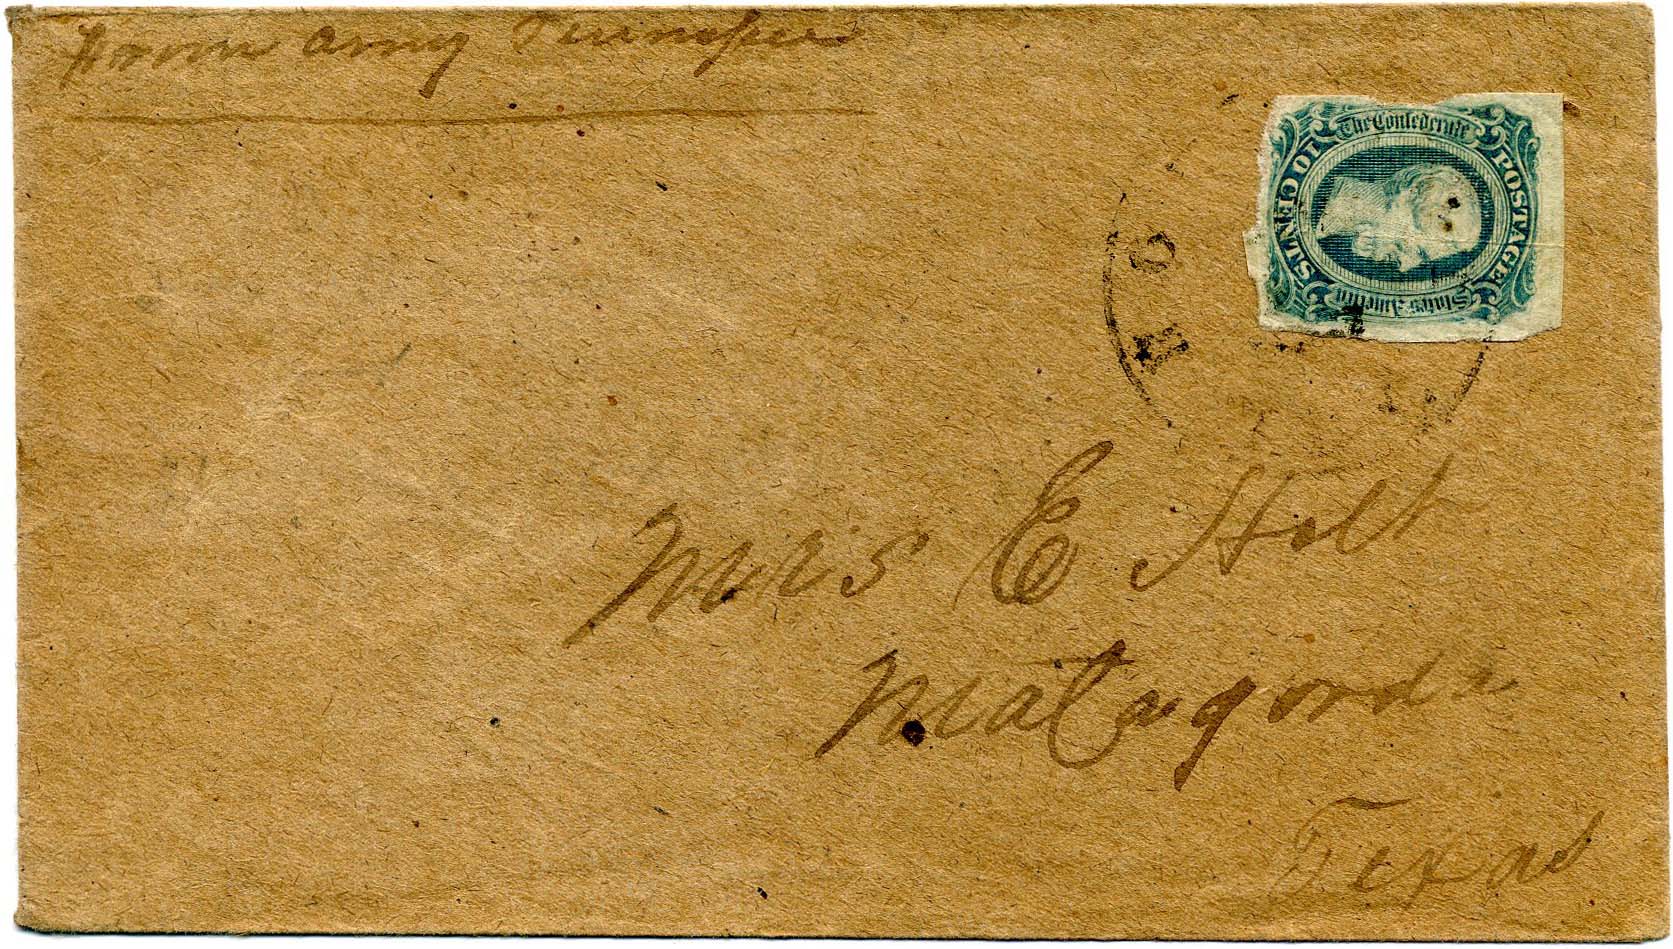 From Army Tennessee
The Confederate
POSTAGE
States America
10 CENTS
Mrs E Holt
Matagorda
Texas